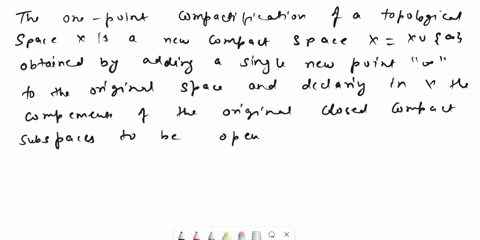 The one-point compactification of a topological
Space X is a new compact space X = X ∪ {∞}
obtained by adding a single new point "∞"
to the original space and declaring in X the
complements of the original closed compact
subspaces to be open